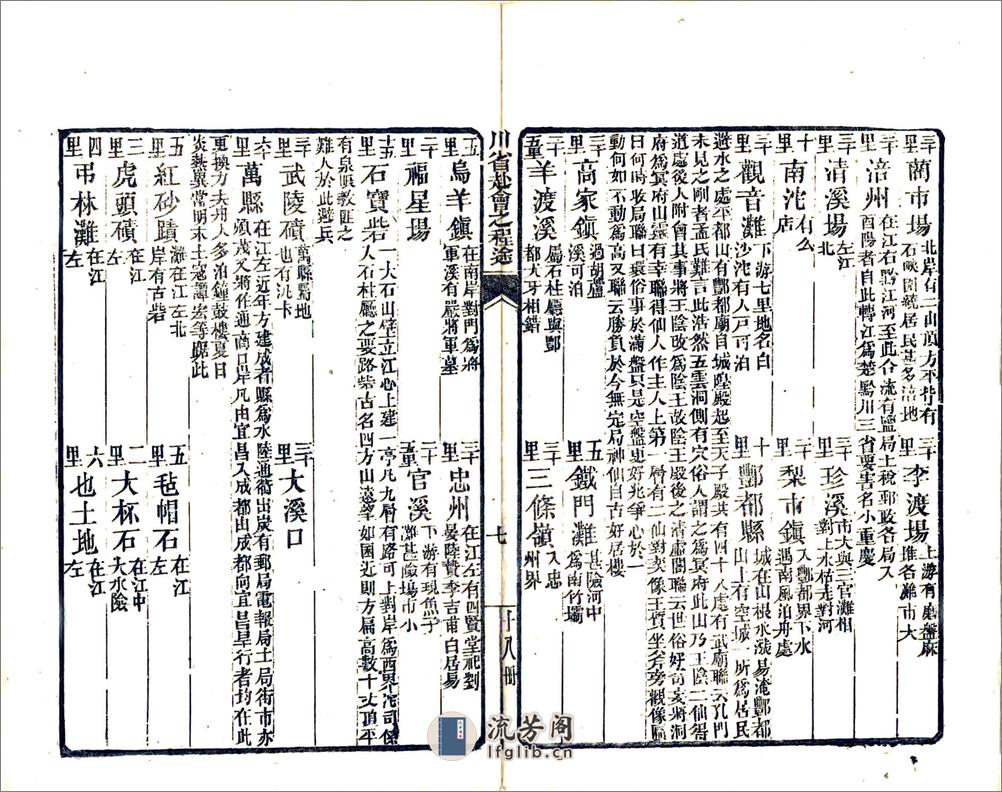 三十里 藺市場 北岸有二山頂方平皆有石礮圍繞居民甚多涪地
三十里 李渡場 上游有磨盤麻堆各灘市大
三十里 涪州 在江右黔江河至此合流有鹽局上稅郵政各局入酉陽者自此轉江爲楚黔川三省要害名小重慶
三十里 清溪場 左江北
三十里 珍溪 市大與三官灘相對上水枯走對河
十里 南沱 有么店
三十里 梨市鎮 入酆都界下水遇南風泊舟處
三十里 觀音灘 下游七里地名白沙沱有人戸可泊
十里 酆都縣 城在山根水漲易淹酆都山上有空城一所爲居民
避水之處平都山有酆都廟自城隍殿起至天子殿共有四十八處有武廟聯云孔門
未見之剛者孟氏難言此浩然五雲洞側有穴俗人謂之爲冥府此山乃王陰二仙得
道處後人附會其事將王陰改爲陰王故陰王殿後之清肅閣聯云世俗好奇亥將洞
府爲冥府山靈有幸聯得仙人作主人上第一層有二仙對奕像王質坐斧旁觀像
曰何時收局聯曰裏俗事於滿盤只是空盤更好兆爭心於一
動何如不動爲高又聯云勝負於今無定局神仙自古好居樓
三十里 高家鎮 過胡蘆溪可泊
五里 鐵門灘 甚險河中爲南竹壩
五里 羊渡溪 屬石柱廳與酆都犬牙相錯
三十里 三條嶺 入忠州界
川省赴會之程途
七
十八冊
五里 烏羊鎮 在南岸對門爲將軍溪有嚴將軍墓
三十里 忠州 在江左有四賢堂祀劉晏陸贄李吉甫白居易
三十里 福星場
二十五里 官溪 下游有現魚子灘甚險場市小
十五里 石寶砦 一大石山壁立江心上建一亭凡九層有路可上對岸爲西界沱司係
入石柱廳之要路砦古名四方山遠望如囷近則方扁高數十丈頂平
有泉嘅教匪之
難人於此避兵
三十里 武陵磧 萬縣屬地也有汛卡
三十里 大溪口
六十里 萬縣 在江左近年方建成省縣爲水陸通衢出炭有郵局電報局土局街市亦
頗茂又將作通商口岸凡由宜昌入成都由成都向宜昌星行者均在此
更換力夫州人多泊鐘鼓樓夏日
炎熱異常明末土寇譚宏等踞此
五里 紅砂蹟 灘在江左北岸有古砦
五里 毡帽石 在江左
三里 虎頭磧 在江左
二里 大杯石 在江中大水險
四里 弔林灘 在江左
六里 也土地 在江左
流芳阁
lfglib.cn